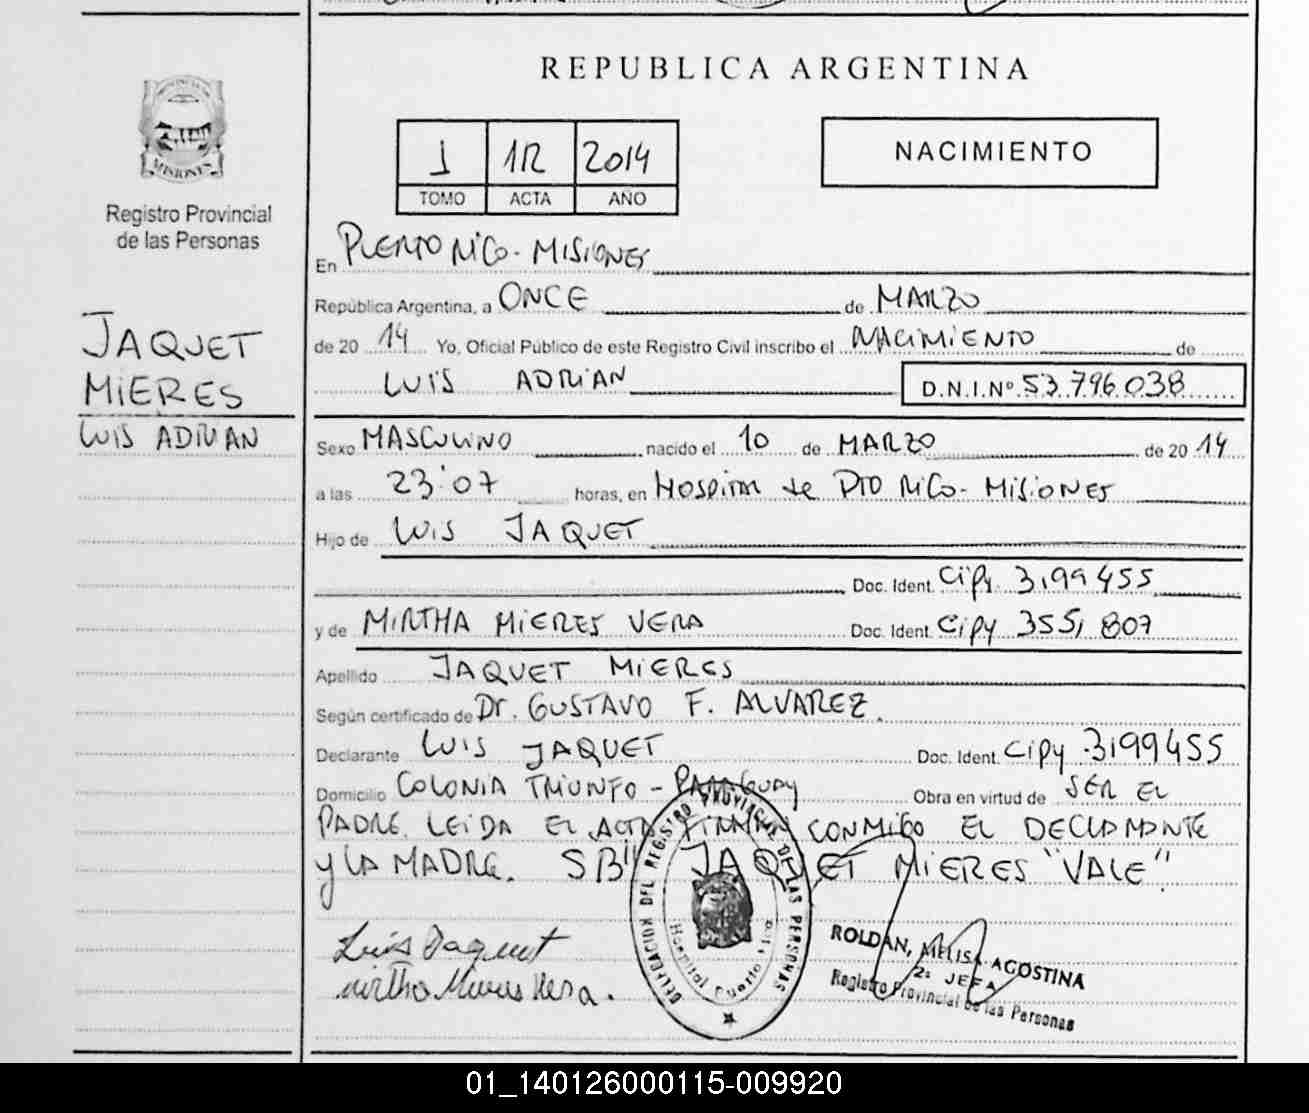 REPUBLICA ARGENTINA
PROVINCIA DE
MISIONES
Registro Provincial
de las Personas
JAQUET
MIERES
LUIS ADRIAN
1 112 2014
TOMO ACTA AÑO
NACIMIENTO
En PUERTO RICO - MISIONES
República Argentina, a ONCE de MARZO
de 20 14 Yo, Oficial Público de este Registro Civil inscribo el NACIMIENTO de
LUIS ADRIAN D.N.I.Nº 53.796.038
Sexo MASCULINO nacido el 10 de MARZO de 20 14
a las 23:07 horas, en HOSPITAL de PTO RICO - MISIONES
Hijo de LUIS JAQUET
Doc. Ident. CIPy 3.199.455
y de MIRTHA MIERES VERA Doc. Ident. CIPy 3551807
Apellido JAQUET MIERES
Según certificado de Dr. GUSTAVO F. ALVAREZ.
Declarante LUIS JAQUET Doc. Ident. CIPy 3199455
Domicilio COLONIA TRIUNFO - PARAGUAY Obra en virtud de SER EL
PADRE. LEIDA EL ACTA FIRMAN CONMIGO EL DECLARANTE
Y LA MADRE. S/B" JAQUET MIERES "VALE".
Luis Jaquet
Mirtha Mieres Vera.
DELEGACION DEL REGISTRO PROVINCIAL DE LAS PERSONAS
Hospital Puerto Rico
ROLDAN, MELISA AGOSTINA
2ª JEFA
Registro Provincial de las Personas
01_140126000115-009920